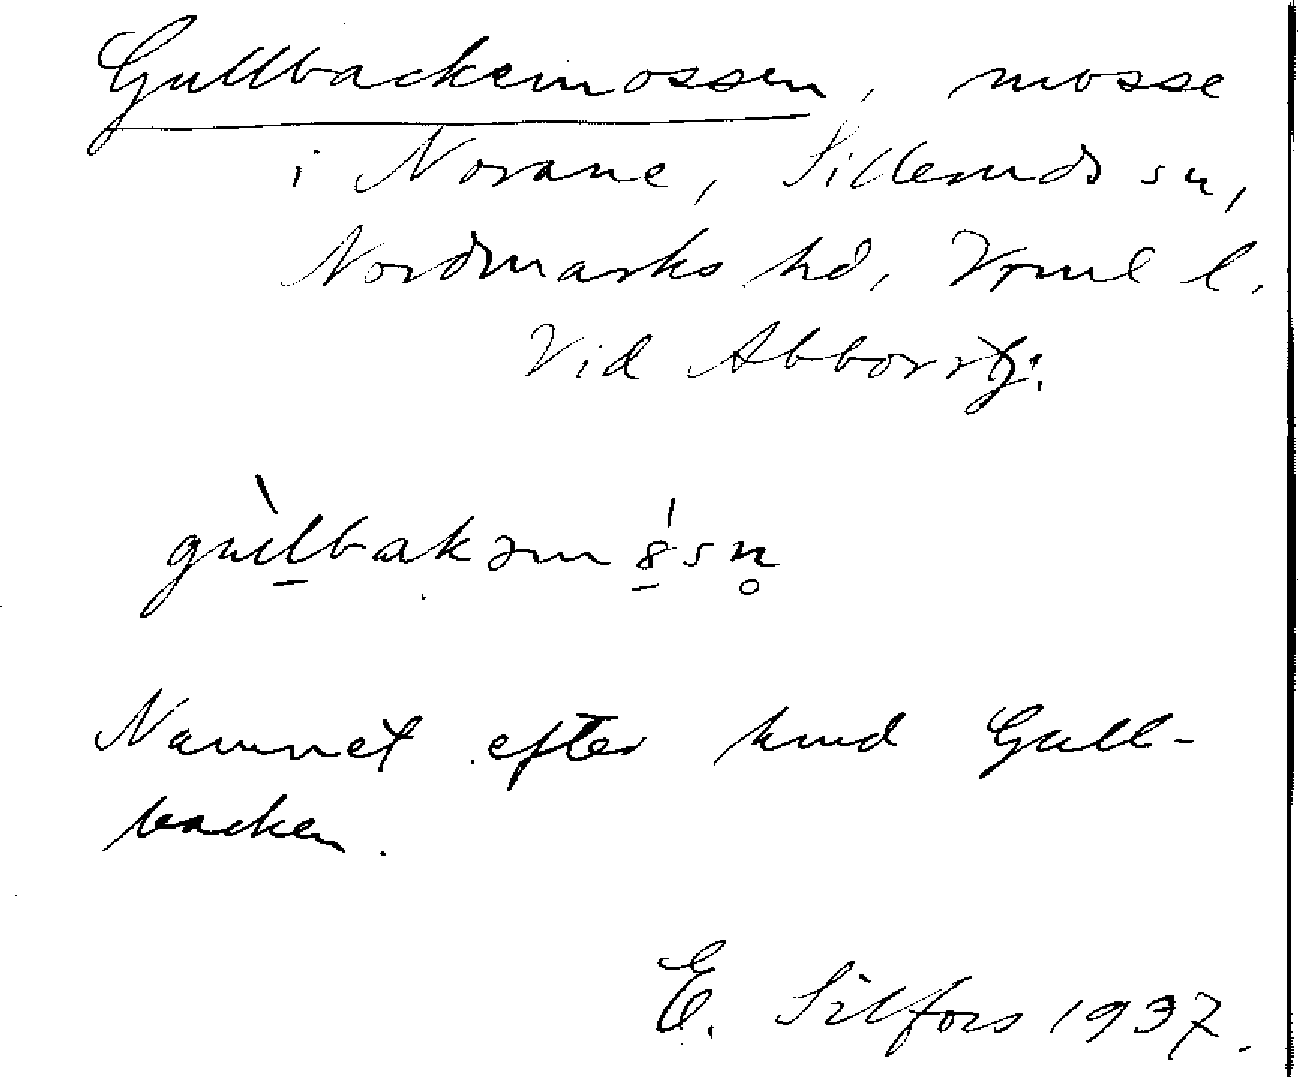 Gullbackemossen, mosse
i Norane, Silleruds sn,
Nordmarks hd, Vrml l.
Vid Abborrtj:
gùlbakəm8́sn̥
Namnet efter hmd Gull-
backen.
E. Silfors 1937.